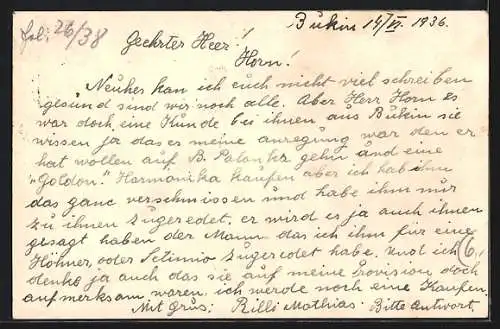 Gel: 26/38
Bukin 14/XI. 1936.
Geehrter Heer!
Horn!
Neuhes kan ich euch nicht viel schreiben
gesund sind wir noch alle. Aber Herr Horn es
war doch eine Kunde bei ihnen aus Bukin sie
wissen ja das es meine anregung war den er
hat wollen auf B. Palanka gehn und eine
"Goldon." Harmanika kaufen aber ich hab ihm
das ganc verschmissen und habe ihm nur
zu ihnen zugeredet, er wird es ja auch ihnen
gesagt haben der Mann das ich ihm für eine
Höhner, oder Setimio zugeredet habe. Und ich
denke ja auch das sie auf meine Provision doch
aufmerksam waren. ich werde noch eine Kaufen
Mit Grus: Rilli Mathias. Bitte Antwort.
6